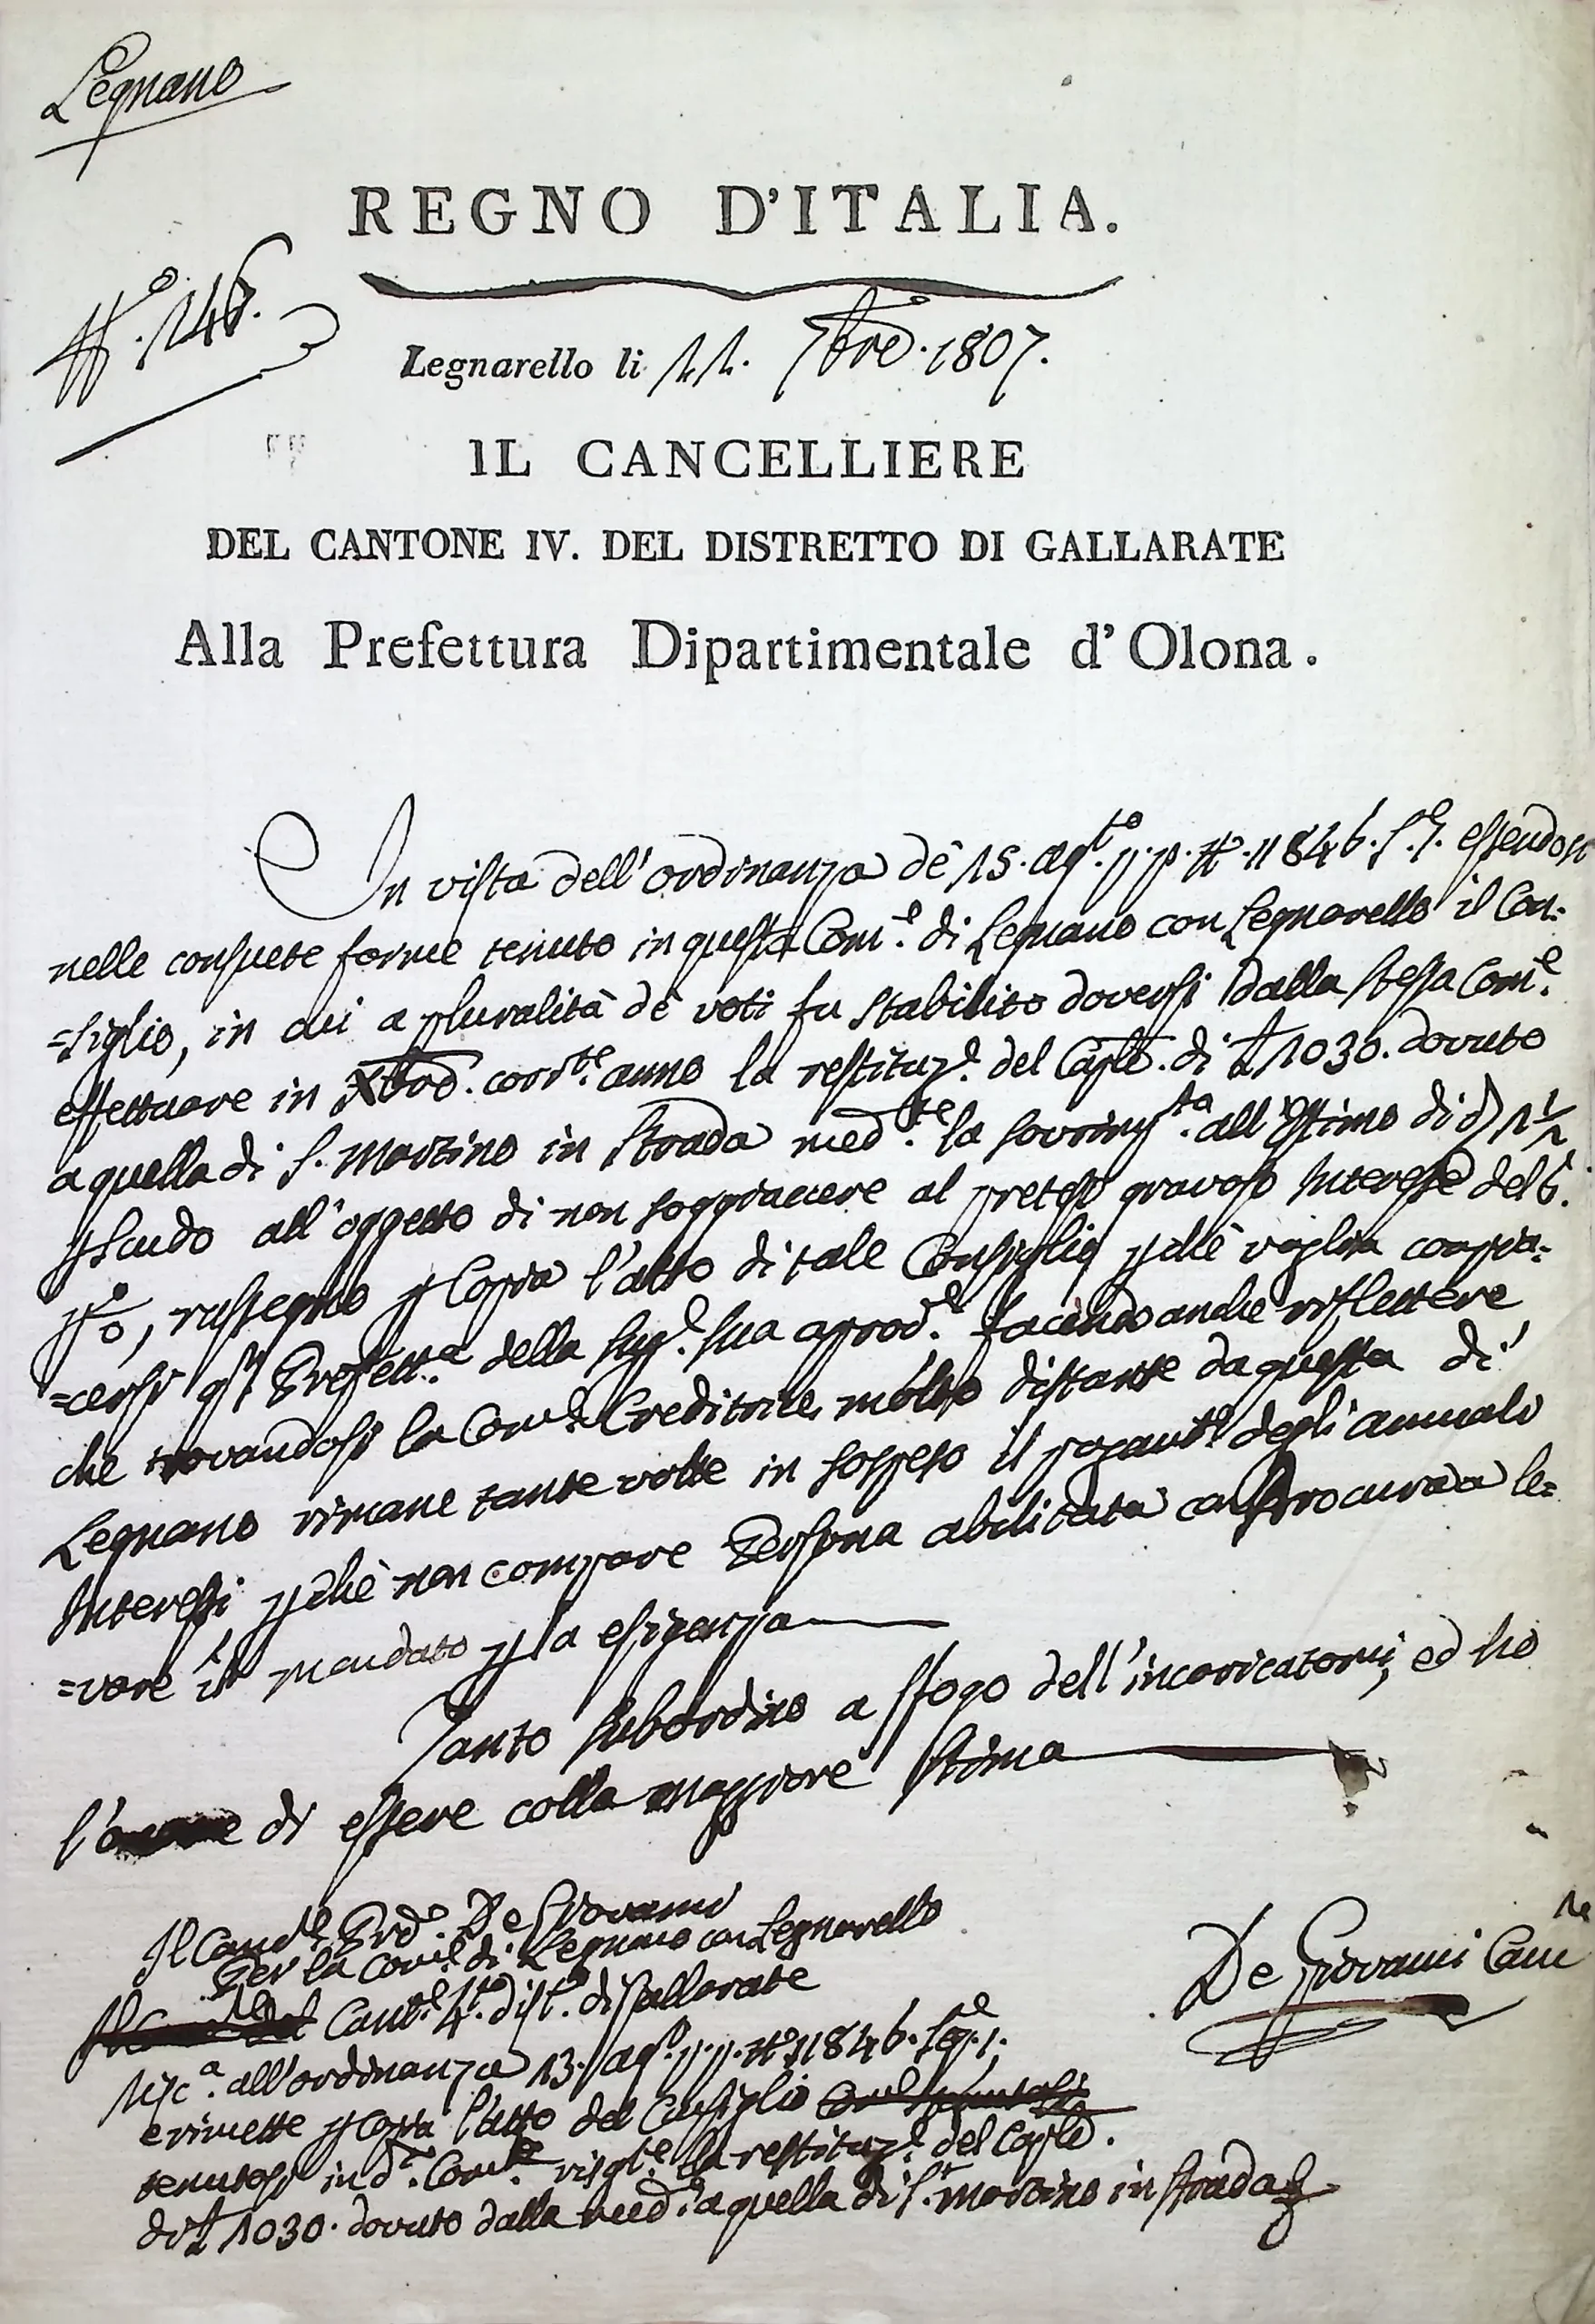 Legnano
REGNO D'ITALIA.
N.º 146.
Legnarello li 11. 7bre. 1807.
IL CANCELLIERE
DEL CANTONE IV. DEL DISTRETTO DI GALLARATE
Alla Prefettura Dipartimentale d'Olona.
In vista dell'ordinanza de' 15. agto. p. p. Nº. 11846. S. I. essendosi
nelle consuete forme tenuto in questa Come. di Legnano con Legnarello il Con:
=siglio, in cui a pluralità de' voti fu stabilito doversi dalla stessa Come.
effettuare in Xbre. corrte. anno la restituze. del Caple. di £ 1030. dovuto
a quella di S. Martino in Strada medte. la sovrimpta. all'Estimo di d) 1 1/2
p scudo all'oggetto di non soggiacere al preteso gravoso Interesse del 6.
p %, rassegno p Copia l'atto di tale Consiglio p chè voglia compia:
=cersi qta. Prefetta. della supe. sua aprove. facendo anche riflettere
che trovandosi la Come. Creditrice molto distante da questa di
Legnano rimane tante volte in sospeso il pagamto. degli annuali
Interessi p chè non compare Persona abilitata con Procura a le=
=vare il mandato p la esigenza
Tanto subordino a sfogo dell'incaricatomi, ed ho
l'onore di essere colla maggiore stima
Il Cancre. Prdo. De Giovanni
Per la Come. di Legnano con Legnarello
Cante. 4to. dist. di Gallarate
Rispa. all'ordinanza 13. ago. p. p. Nº 11846. Sez. I.
e rimette p Copia l'atto del Consiglio
tenutosi in da. Come. risgte. la restituze. del Caple.
di £ 1030. dovuto dalla meda. a quella di S. Martino in Strada
De Giovanni Cancre